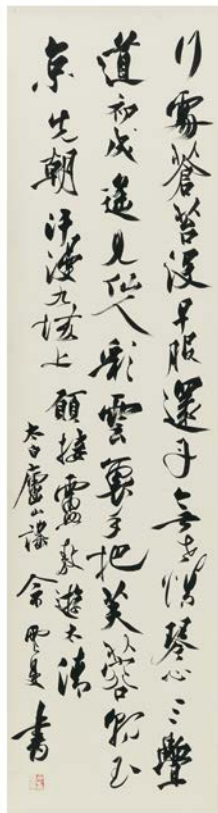 行處蒼苔沒早服還丹無世情琴心三疊
道初成遙見仙人彩雲裏手把芙蓉朝玉
京先期汗漫九垓上願接盧敖遊太清
太白廬山謠 佘雪曼書